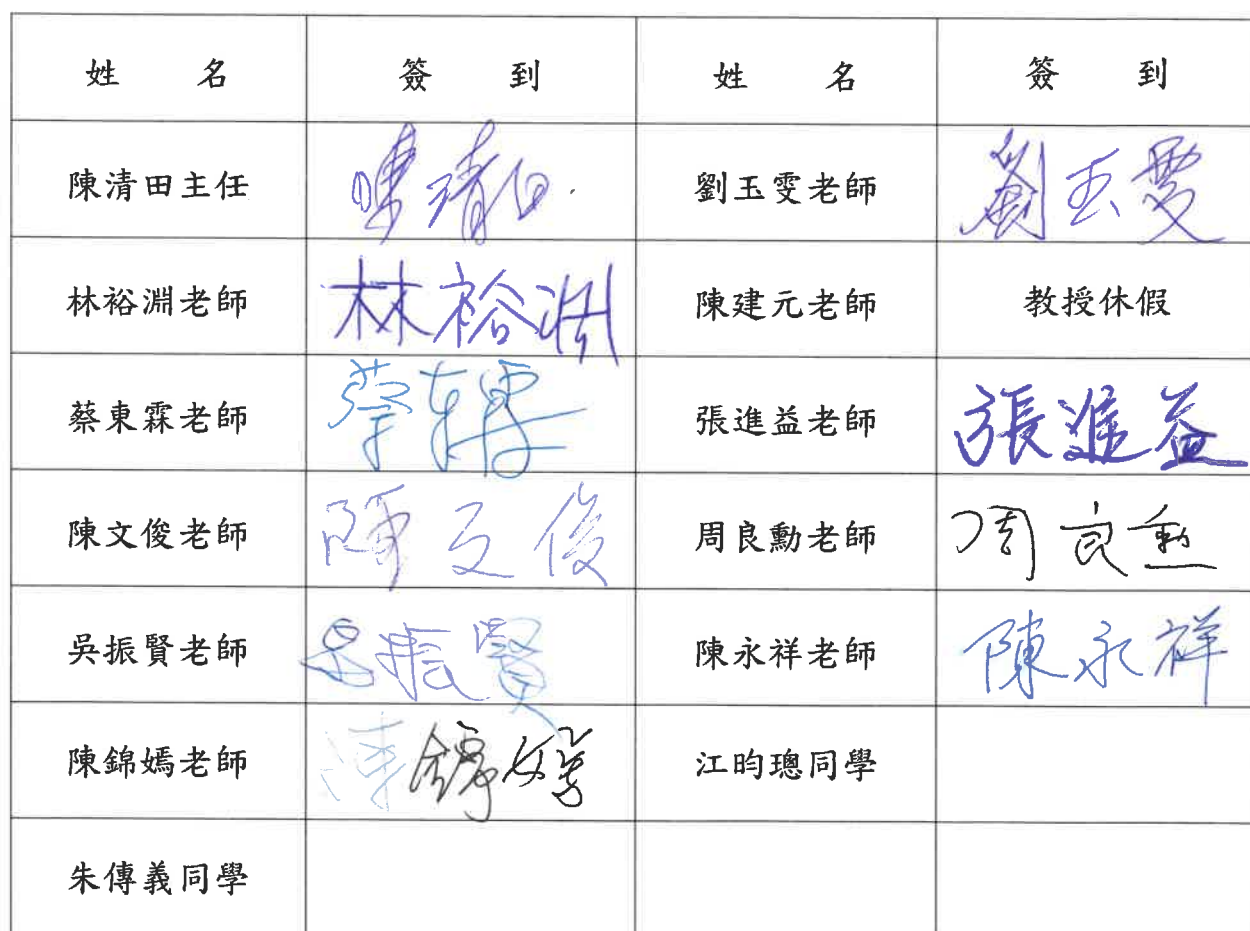 姓 名 簽 到 姓 名 簽 到
陳清田主任 陳清田 劉玉雯老師 劉玉雯
林裕淵老師 林裕渊 陳建元老師 教授休假
蔡東霖老師 蔡東霖 張進益老師 張進益
陳文俊老師 陳文俊 周良勳老師 周良勳
吳振賢老師 吳振賢 陳永祥老師 陳永祥
陳錦嫣老師 陳錦嫣 江昀璁同學
朱傳義同學